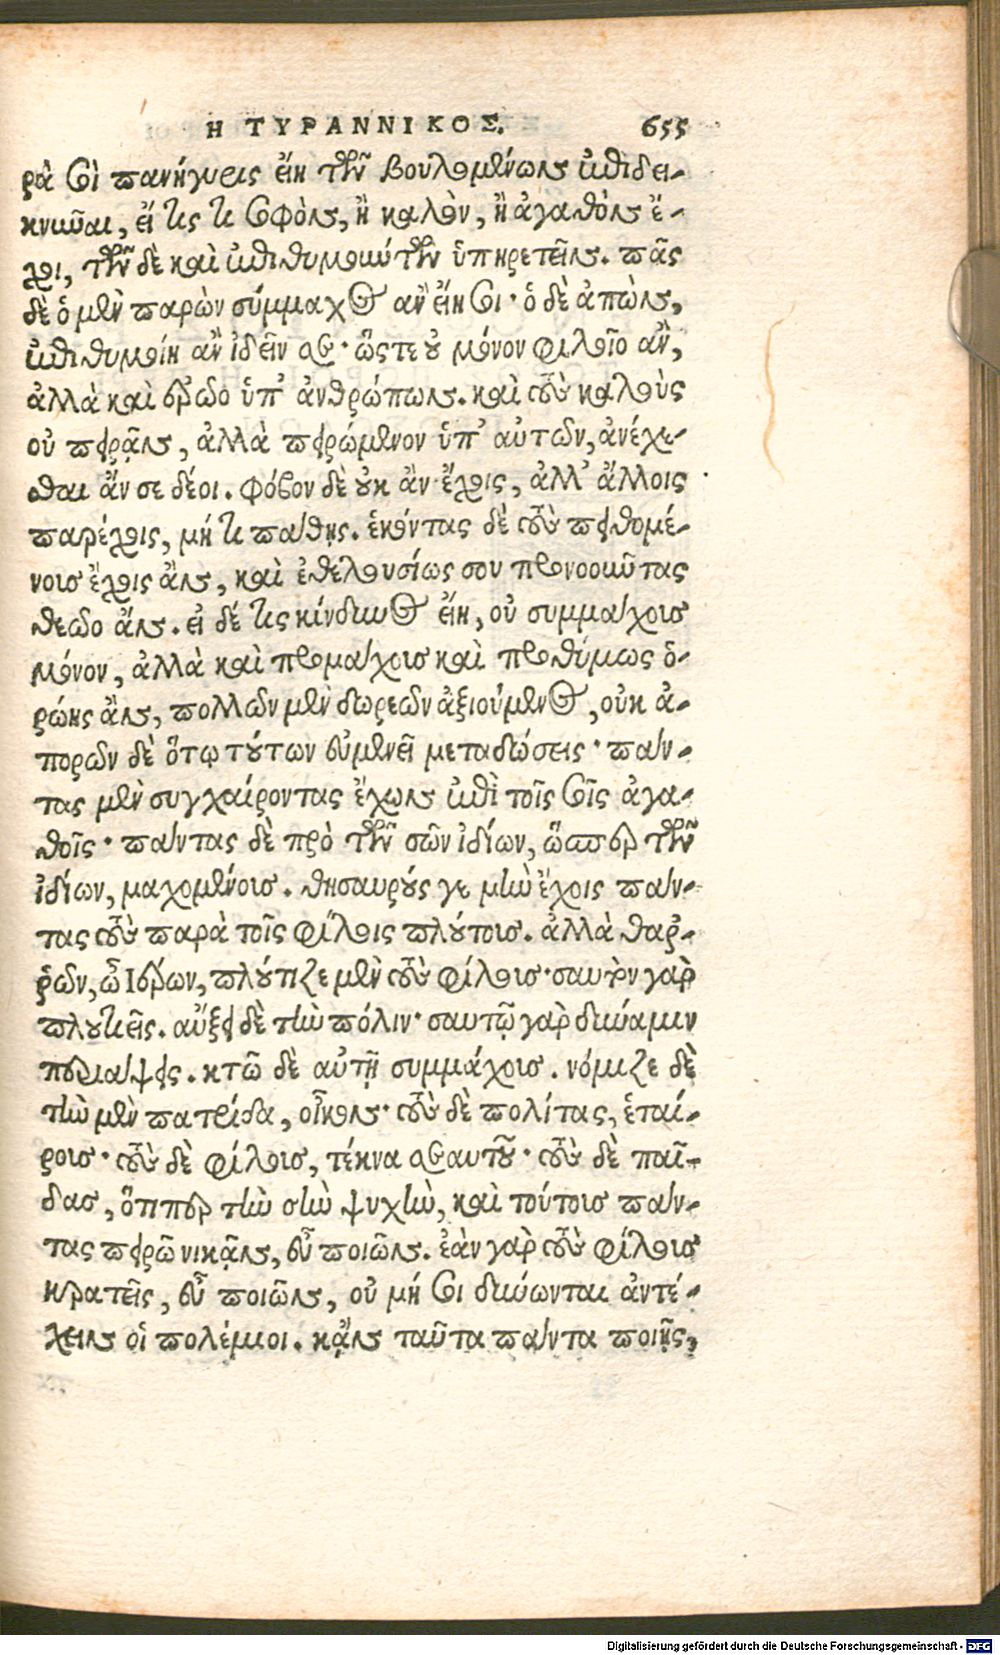 Η ΤΥΡΑΝΝΙΚΟΣ. 655
ρὰ σοὶ πανήγυρις εἴη τῶν βουλομένων ἐπιδει-
κνῦναι, εἴ τις τι σοφὸν, ἢ καλὸν, ἢ ἀγαθὸν ἔ-
χοι, τῶν δὲ καὶ ἐπιθυμούντων ὑπηρετεῖν. πᾶς
δὲ ὁ μὲν παρὼν σύμμαχος ἂν εἴη σοι· ὁ δὲ ἀπὼν,
ἐπιθυμοίη ἂν ἰδεῖν σε· ὥστε οὐ μόνον φιλοῖο ἂν,
ἀλλὰ καὶ ἐρῷο ὑπ' ἀνθρώπων. καὶ τοὺς καλοὺς
οὐ πειρᾷν, ἀλλὰ πειρώμενον ὑπ' αὐτῶν, ἀνέχε-
σθαι ἄν σε δέοι. φόβον δὲ οὐκ ἂν ἔχοις, ἀλλ' ἄλλοις
παρέχοις, μή τι πάθῃς. ἑκόντας δὲ τοὺς πειθομέ-
νους ἔχοις ἂν, καὶ ἐθελουσίως σου προνοοῦντας
θεῷο ἄν. εἰ δέ τις κίνδυνος εἴη, οὐ συμμάχους
μόνον, ἀλλὰ καὶ προμάχους καὶ προθύμως ὁ-
ρῴης ἂν, πολλῶν μὲν δωρεῶν ἀξιούμενος, οὐκ ἀ-
πορῶν δὲ ὅτῳ τούτων εὐμενεῖ μεταδώσεις· πάν-
τας μὲν συγχαίροντας ἔχων ἐπὶ τοῖς σοῖς ἀγα-
θοῖς· πάντας δὲ πρὸ τῶν σῶν ἰδίων, ὥσπερ τῶν
ἰδίων, μαχομένους. θησαυρούς γε μὴν ἔχοις πάν-
τας τοὺς παρὰ τοῖς φίλοις πλούτους. ἀλλὰ θαῤ-
ῥῶν, ὦ Ἱέρων, πλούτιζε μὲν τοὺς φίλους· σαυτὸν γὰρ
πλουτιεῖς. αὖξε δὲ τὴν πόλιν· σαυτῷ γὰρ δύναμιν
περιάψεις. κτῶ δὲ αὐτῇ συμμάχους. νόμιζε δὲ
τὴν μὲν πατρίδα, οἶκον· τοὺς δὲ πολίτας, ἑταί-
ρους· τοὺς δὲ φίλους, τέκνα σεαυτοῦ· τοὺς δὲ παῖ-
δας, ὅτιπερ τὴν σὴν ψυχὴν, καὶ τούτους πάν-
τας πειρῶ νικᾷν, εὖ ποιῶν. ἐὰν γὰρ τοὺς φίλους
κρατῇς, εὖ ποιῶν, οὐ μή σοι δύνωνται ἀντέ-
χειν οἱ πολέμιοι. κἂν ταῦτα πάντα ποιῇς,
Digitalisierung gefördert durch die Deutsche Forschungsgemeinschaft - DFG